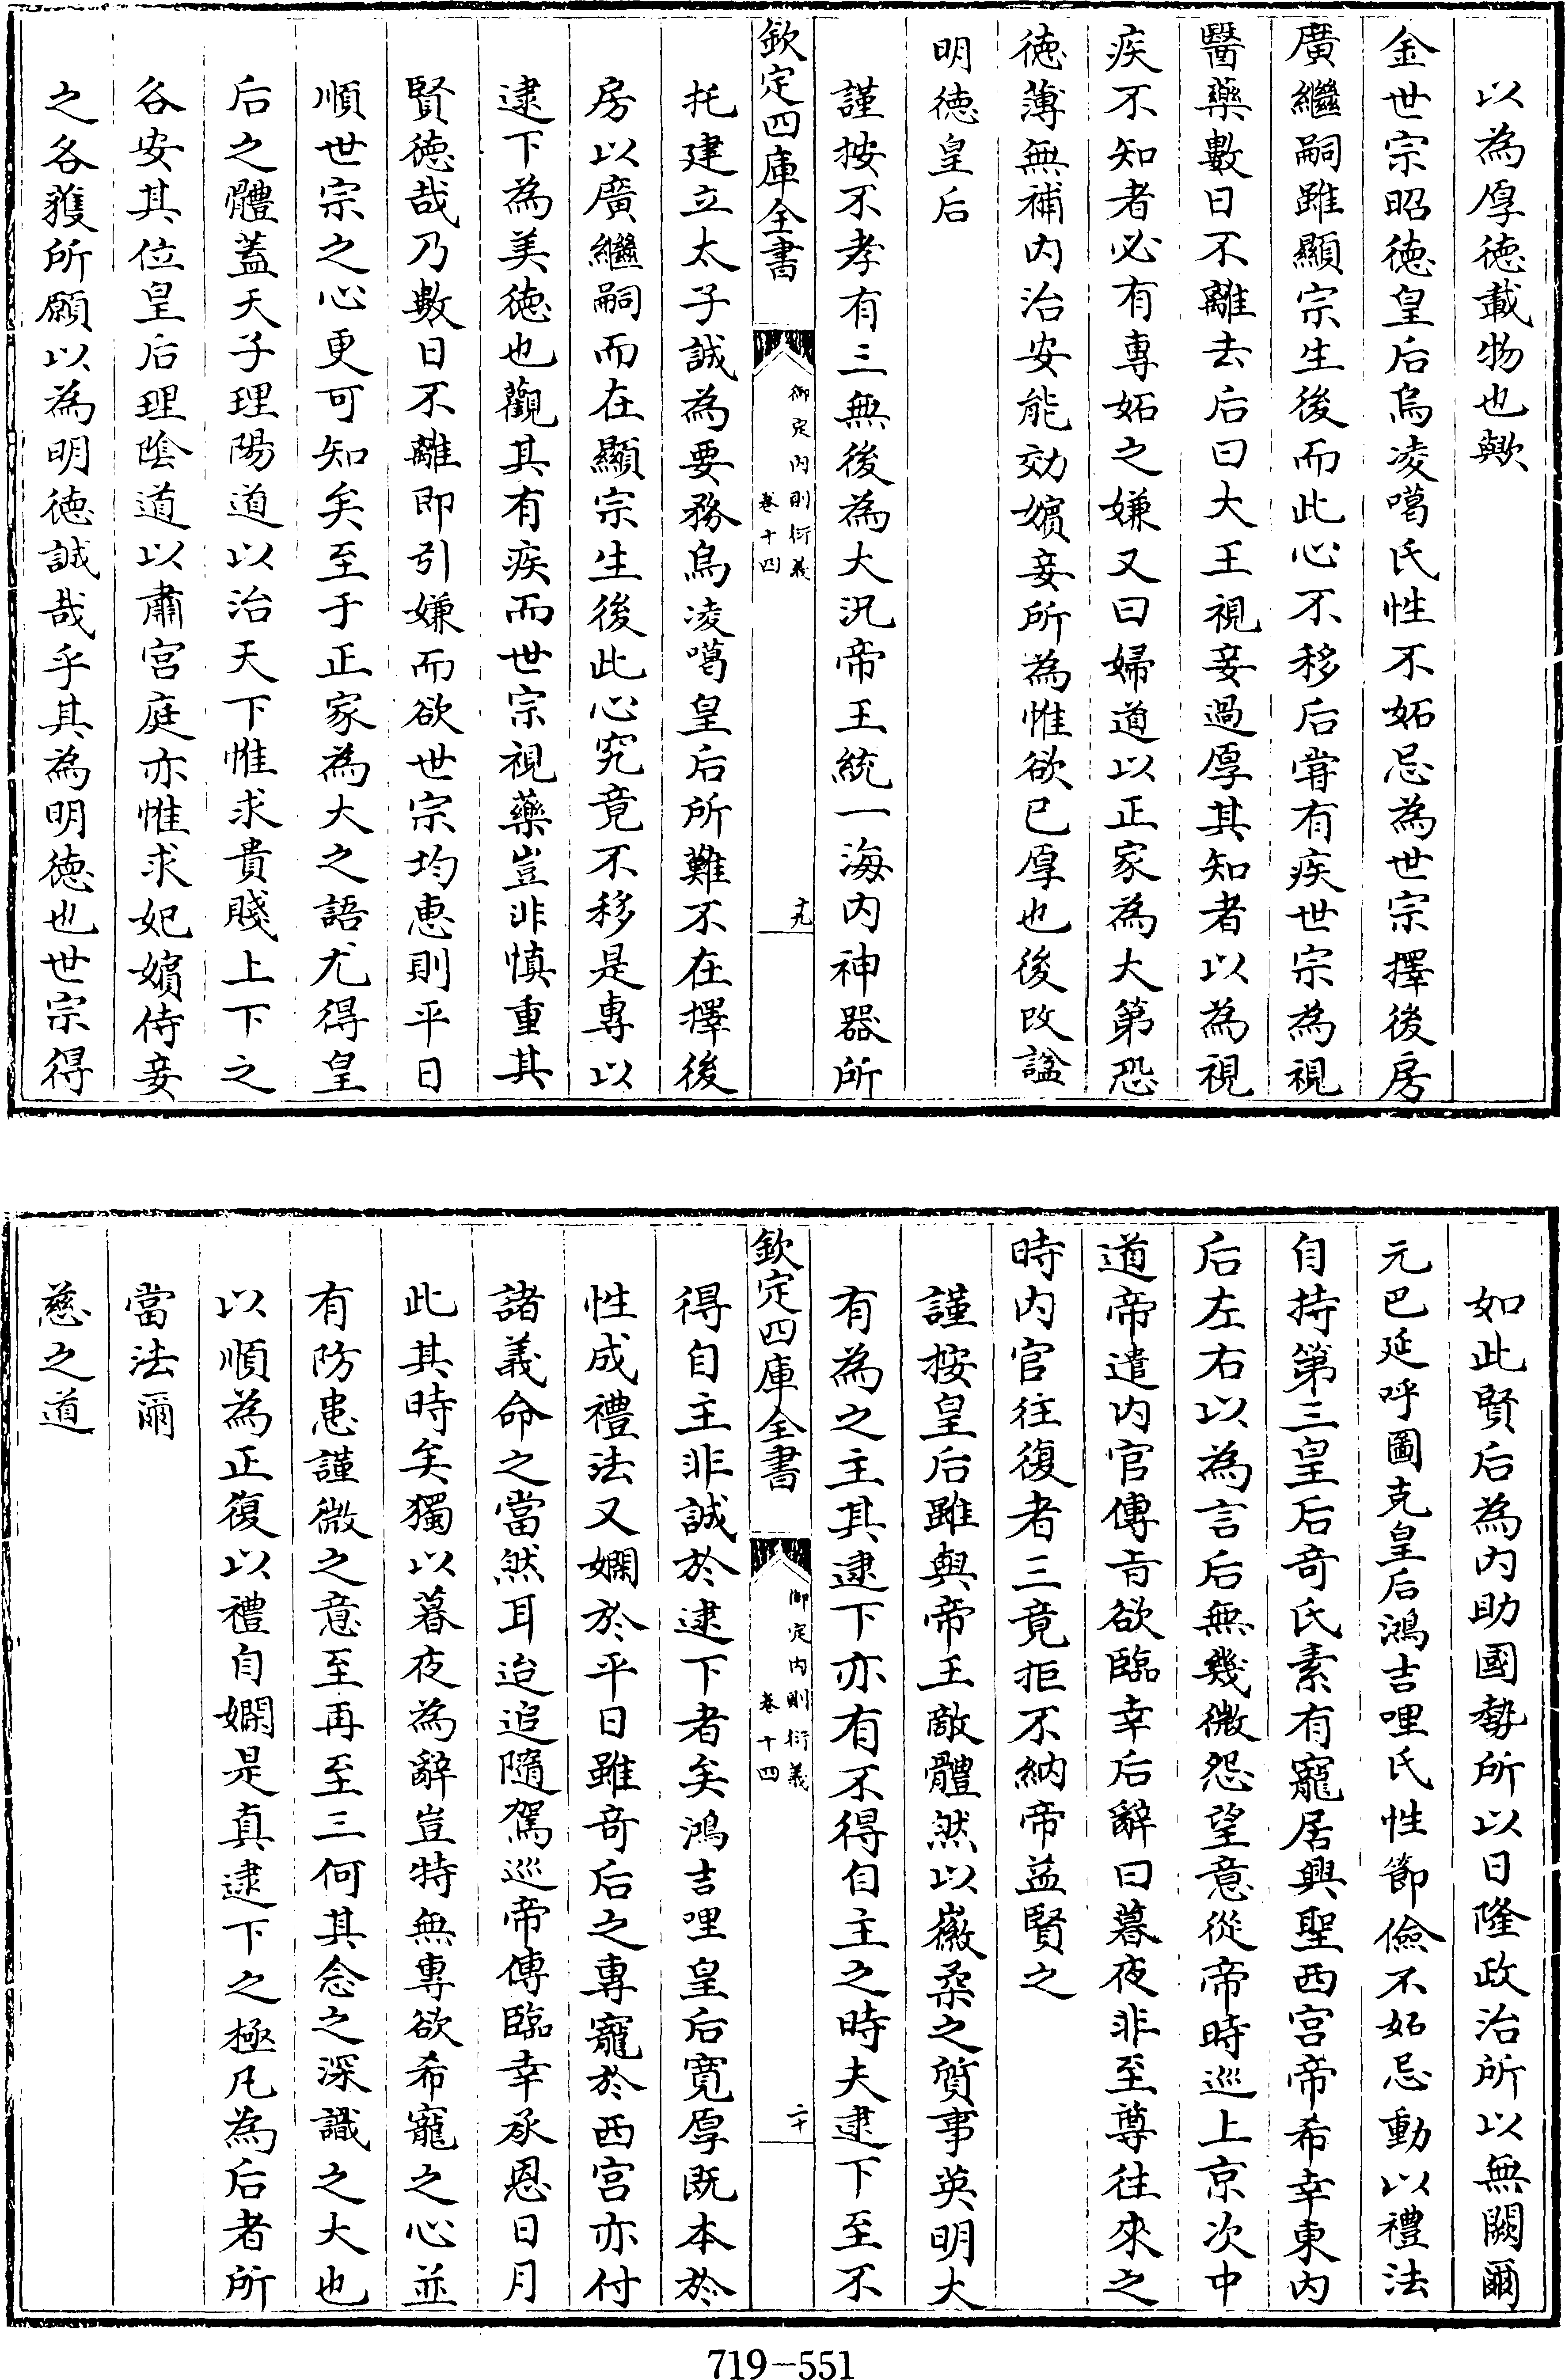 以為厚徳載物也歟
金世宗昭徳皇后烏凌噶氏性不妬忌為世宗擇後房
廣繼嗣雖顯宗生後而此心不移后嘗有疾世宗為視
醫藥數日不離去后曰大王視妾過厚其知者以為視
疾不知者必有專妬之嫌又曰婦道以正家為大第恐
徳薄無補内治安能効嬪妾所為惟欲己厚也後改諡
明徳皇后
謹按不孝有三無後為大況帝王統一海内神器所
欽定四庫全書
御定内則衍義
卷十四
十九
托建立太子誠為要務烏凌噶皇后所難不在擇後
房以廣繼嗣而在顯宗生後此心究竟不移是專以
逮下為美徳也觀其有疾而世宗視藥豈非慎重其
賢徳哉乃數日不離即引嫌而欲世宗均恵則平日
順世宗之心更可知矣至于正家為大之語尤得皇
后之體蓋天子理陽道以治天下惟求貴賤上下之
各安其位皇后理陰道以肅宫庭亦惟求妃嬪侍妾
之各獲所願以為明徳誠哉乎其為明徳也世宗得
如此賢后為内助國勢所以日隆政治所以無闕爾
元巴延呼圖克皇后鴻吉哩氏性節儉不妬忌動以禮法
自持第三皇后奇氏素有寵居興聖西宫帝希幸東内
后左右以為言后無幾微怨望意從帝時巡上京次中
道帝遣内官傳㫖欲臨幸后辭曰暮夜非至尊往來之
時内官往復者三竟拒不納帝益賢之
謹按皇后雖與帝王敵體然以徽柔之質事英明大
有為之主其逮下亦有不得自主之時夫逮下至不
欽定四庫全書
御定内則衍義
卷十四
二十
得自主非誠於逮下者矣鴻吉哩皇后寛厚既本於
性成禮法又嫻於平日雖奇后之專寵於西宫亦付
諸義命之當然耳迨追隨駕巡帝傳臨幸承恩日月
此其時矣獨以暮夜為辭豈特無專欲希寵之心並
有防患謹微之意至再至三何其念之深識之大也
以順為正復以禮自嫻是真逮下之極凡為后者所
當法爾
慈之道
719-551